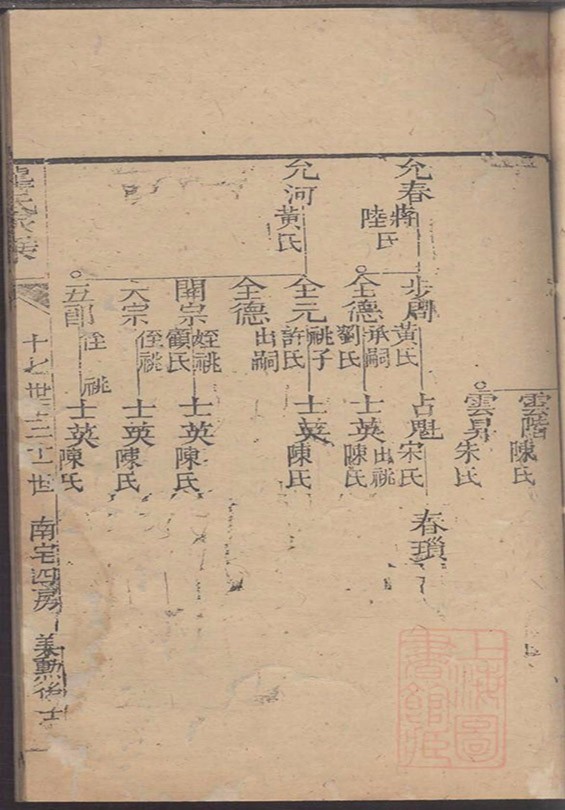 雲階陳氏
雲昇朱氏
允春蔣氏
陸氏
步周黃氏
占魁宋氏
春瑣
全德承嗣
劉氏
士英出祧
陳氏
允河黃氏
全元祧子
許氏
士英陳氏
全德出嗣
開宗姪祧
顧氏
士英陳氏
大宗侄祧
士英陳氏
五郎侄祧
士英陳氏
十七世至二十一世
南宅四房
美勳後
上海圖
書館藏